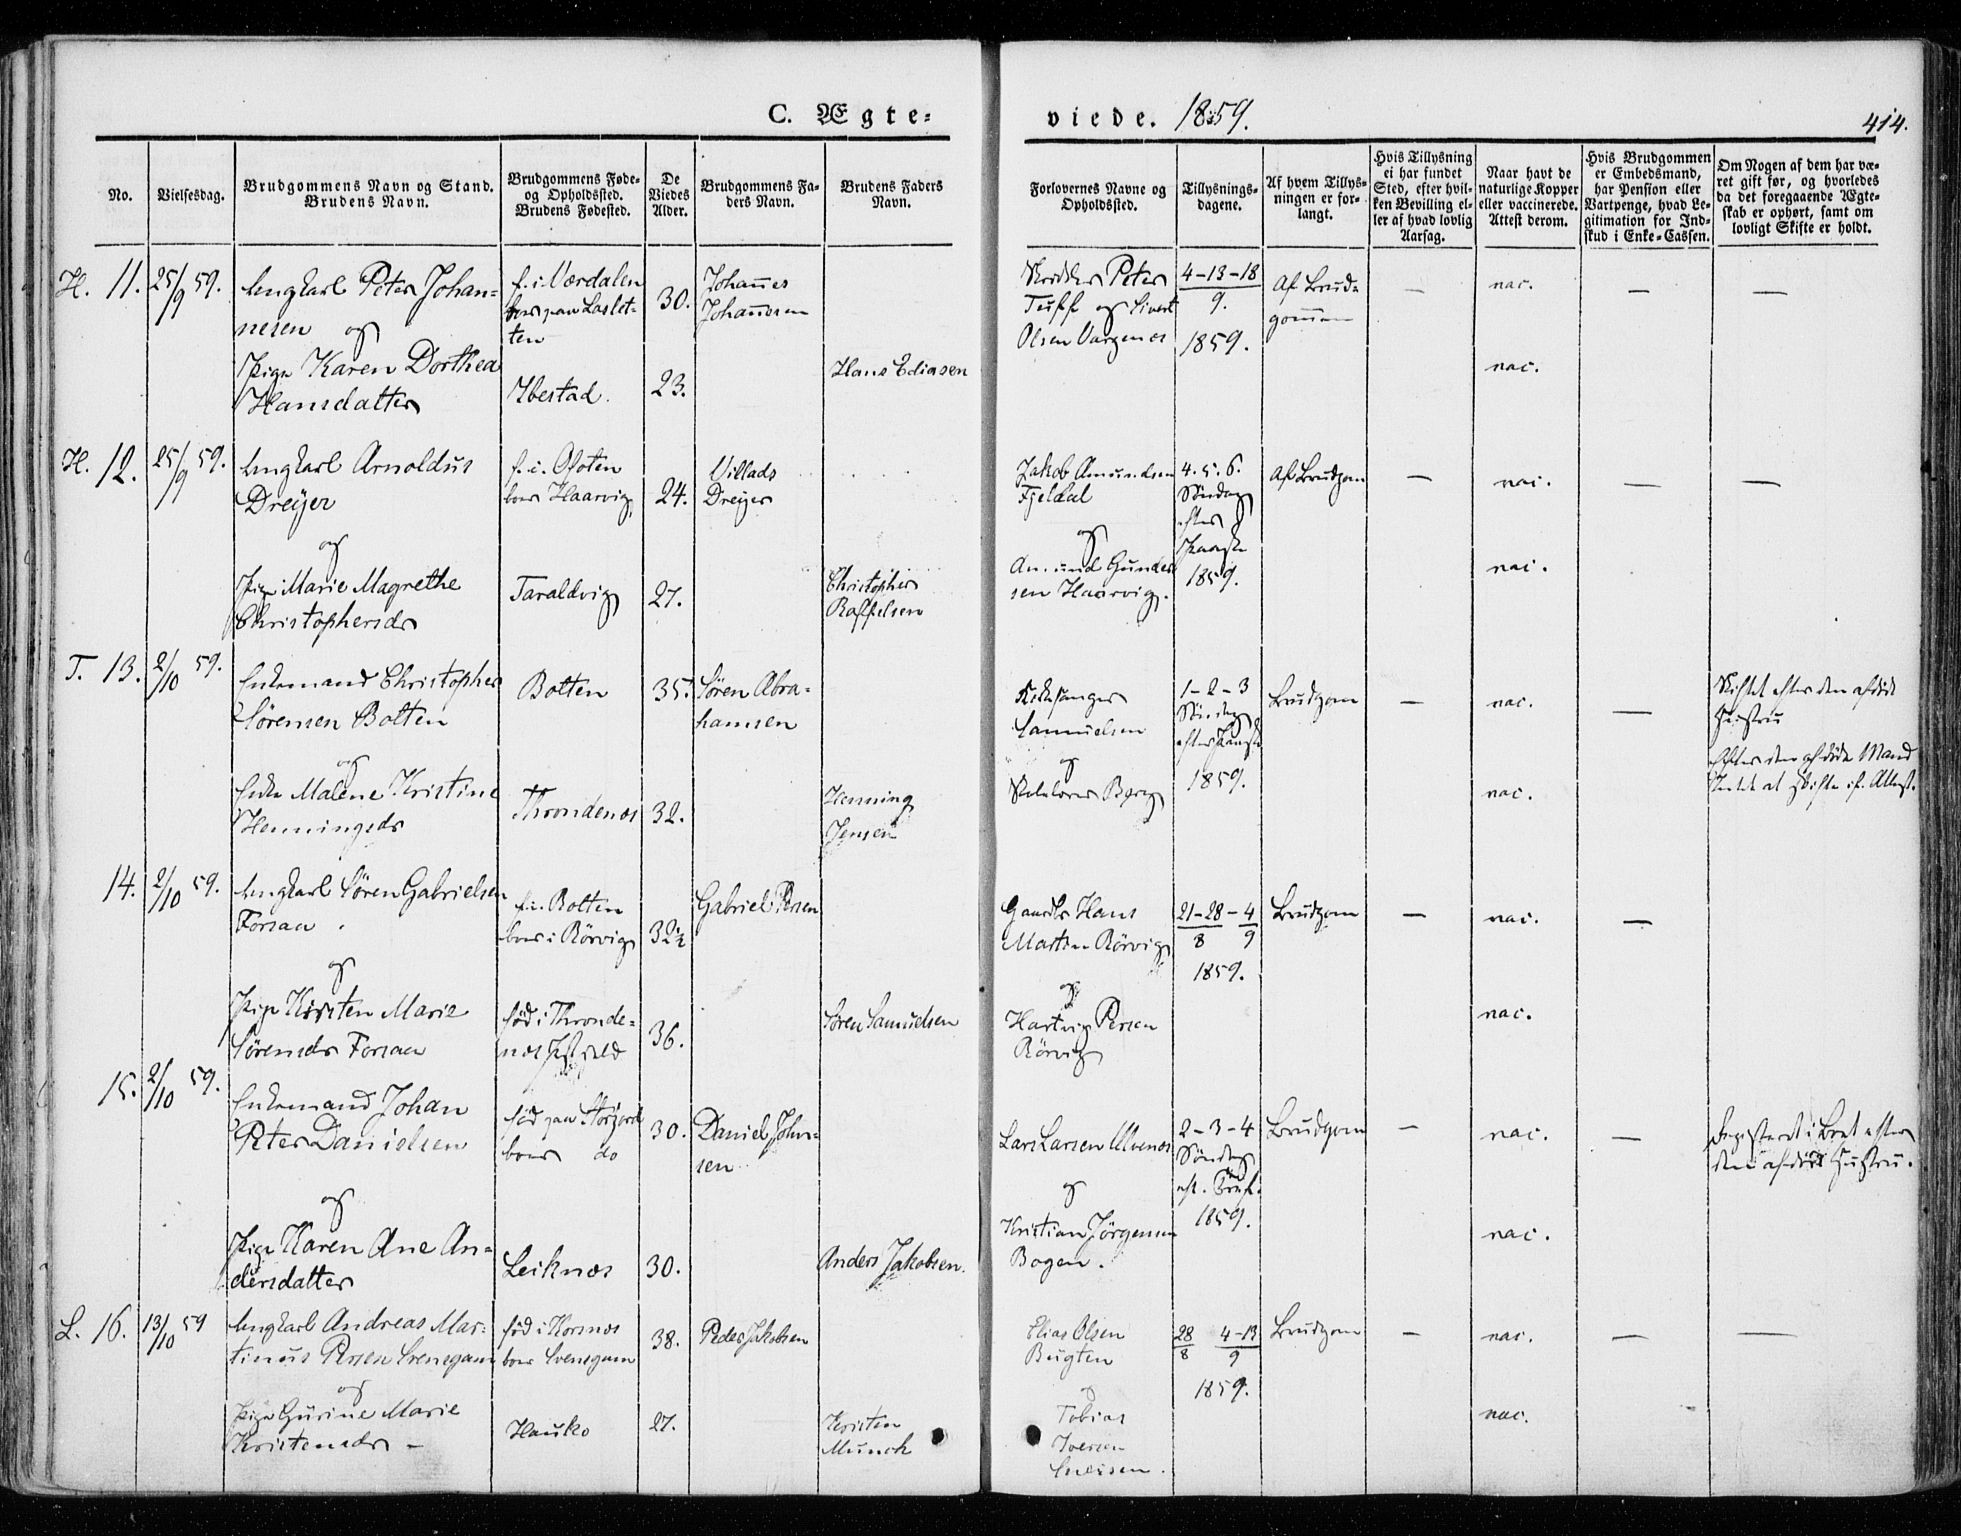 C. Ægte-
viede. 1859.
414.
No.
Vielsesdag.
Brudgommens Navn og Stand.
Brudens Navn.
Brudgommens Føde-
og Opholdssted.
Brudens Fødested.
De
Viedes
Alder.
Brudgommens Fa-
ders Navn.
Brudens Faders
Navn.
Forlovernes Navne og
Opholdssted.
Tillysnings-
dagene.
Af hvem Tillys-
ningen er for-
langt.
Hvis Tillysning
ei har fundet
Sted, efter hvil-
ken Bevilling el-
ler af hvad lovlig
Aarsag.
Naar havt de
naturlige Kopper
eller vaccinerede.
Attest derom.
Hvis Brudgommen
er Embedsmand,
har Pension eller
Vartpenge, hvad Le-
gitimation for Ind-
skud i Enke-Cassen.
Om Nogen af dem har væ-
ret gift før, og hvorledes
da det foregaaende Ægte-
skab er ophørt, samt om
lovligt Skifte er holdt.
H. 11. 25/9 59.
Ungkarl Peter Johan-
nesen og
Pige Karen Dorthea
Hansdatter
f. i Værdalen
boer paa Laslet-
ten
Ibestad.
30.
23.
Johannes
Johannesen
Hans Ediasen
Peter
Tuff og Sivert
Olsen Vargenes
4-13-18
9.
1859.
Af Brud-
gommen
—
nac.
nac.
—
—
H. 12. 25/9 59.
Ungkarl Arnoldus
Dreyer
og
Pige Marie Magrethe
Christophersdr
f. i. Ofoten
boer Haarvig
Taraldvig
24.
27.
Villads
Dreyer
Christopher
Raffelsen
Jakob Amundsen
Fjeldal
og
Amund Gunder
sen Haarvig.
4. 5. 6.
Søndag
efter
Paaske
1859.
Af Brudgom
—
nac.
nac.
—
—
T. 13. 2/10 59.
Enkemand Christopher
Sørensen Bolten
og
Enke Malene Kristine
Henningsdr
Bolten
Throndenes
35.
32.
Søren Abra-
hamsen
Henning
Jensen
Kirkesanger
Samuelsen
og
Berg
1-2-3
Søndag
efter Paaske
1859.
Brudgom
—
nac.
nac.
—
Skiftet efter den afdøde
Hustru
Efter den afdøde Mand
Intet at skifte if. Attest.
14. 2/10 59.
Ungkarl Søren Gabrielsen
Forsaa.
og
Pige Kirsten Marie
Sørensdr Forsaa
f. i. Bolten
boer i Rörvig
fød i Thronde-
nes Prstgjeld
32½
36.
Gabriel Persen
Søren Samuelsen
Gaardbr Hans
Martin Rörvig
og
Hartvig Persen
Rörvig
21-28-4
8 9
1859.
Brudgom
—
nac.
nac.
—
15. 2/10 59.
Enkemand Johan
Peter Danielsen
og
Pige Karen Ane An-
dersdatter
fød paa Storjord
boer do
Leiknes
30.
30.
Daniel John-
sen
Anders Jakobsen.
Lars Larsen Ulvenes
og
Kristian Jörgensen
Bogen.
2-3-4
Søndag
eft.
1859.
Brudgom
—
nac.
nac.
—
i Boet efter
den afdøde Hustru.
L. 16. 13/10 59
Ungkarl Andreas Mar-
tinus Persen Svensgam
og
Pige Gurine Marie
Kristensdr —
fød i Korsnes
boer Svensgam
Hauko
38.
27.
Peder Jakobsen
Kristen
Munch
Elias Olsen
Bugten
og
Tobias
Iversen
28 4-13
8 9
1859.
Brudgom
—
nac.
nac.
—
—